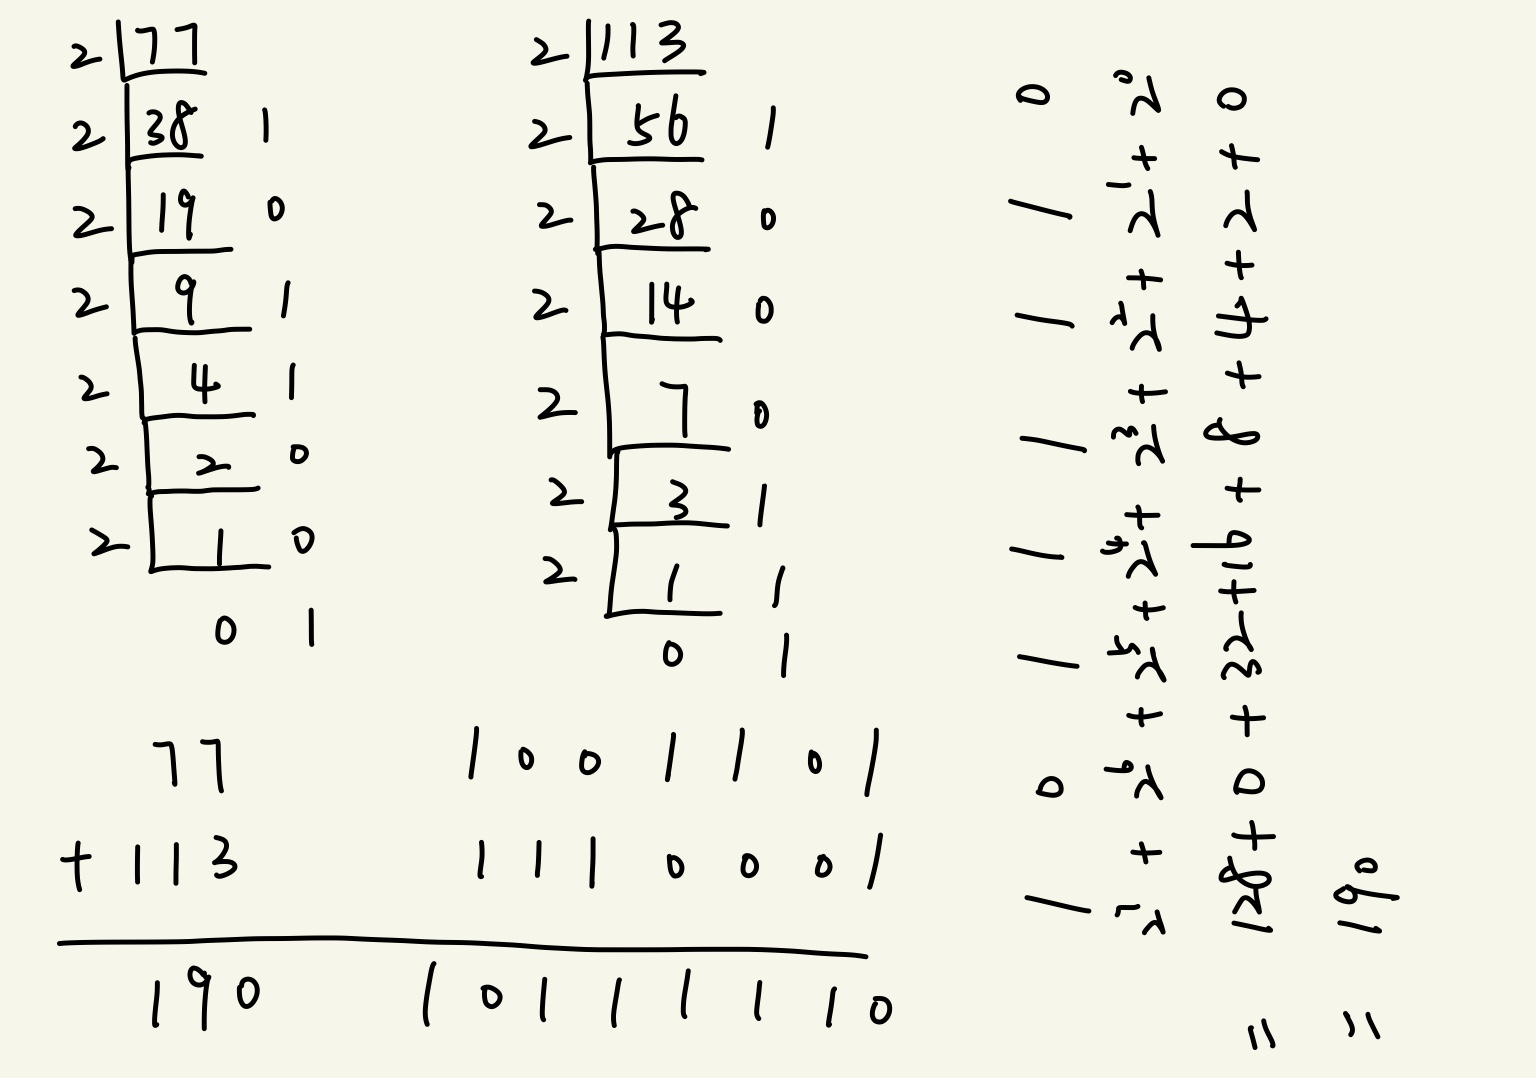 2 77
2 38 1
2 19 0
2 9 1
2 4 1
2 2 0
2 1 0
0 1
2 113
2 56 1
2 28 0
2 14 0
2 7 0
2 3 1
2 1 1
0 1
77 1001101
+ 113 1110001
190 10111110
1 0 1 1 1 1 1 0
2⁷ + 2⁶ + 2⁵ + 2⁴ + 2³ + 2² + 2¹ + 2⁰
= 128 + 0 + 32 + 16 + 8 + 4 + 2 + 0
= 190